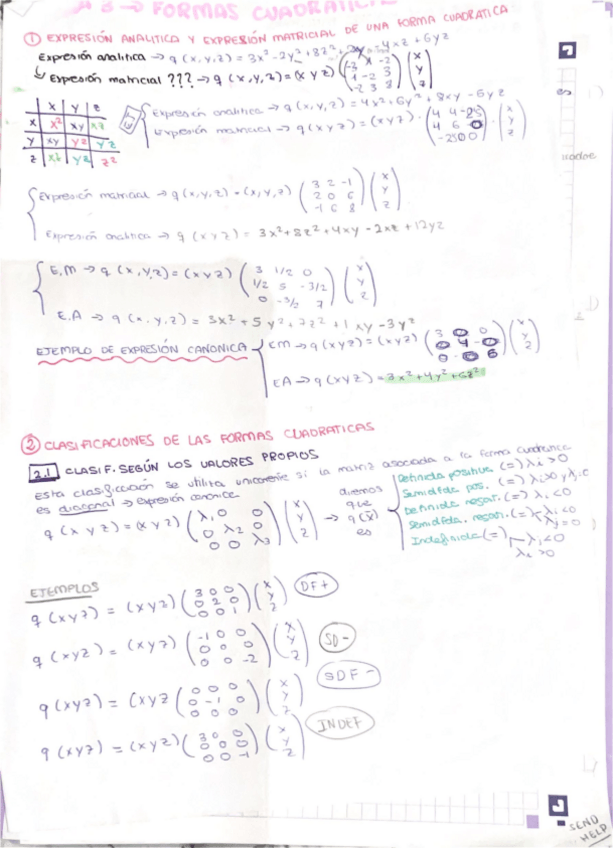 FORMAS CUADRÁTIC
① EXPRESIÓN ANALITICA Y EXPRESIÓN MATRICIAL DE UNA FORMA CUADRATICA
Expresión analitica → q (x,y,z) = 3x² -2y² +8z² -4xz +6yz
↳ Expresión matricial ??? → q (x,y,z) = (x y z)
x y z
x x² xy xz
y xy y² yz
z xz yz z²
Expresión analitica → q (x,y,z) = 4x² +6y² + 8xy - 5yz
Expresión matricial → q (x y z) = (x y z) ·
Expresión matricial → q (x,y,z) = (x,y,z) (3 2 -1 / 2 0 6 / -1 6 8) (x / y / z)
Expresión analitica → q (x y z) = 3x² + 8z² + 4xy - 2xz + 12yz
E.M → q (x,y,z) = (x y z) (3 1/2 0 / 1/2 5 -3/2 / 0 -3/2 7) (x / y / z)
E.A → q (x,y,z) = 3x² + 5y² + 7z² + 1xy - 3y²
EJEMPLO DE EXPRESIÓN CANONICA
EM → q (x y z) = (x y z) (3 0 0 / 0 4 0 / 0 0 6) (x / y / z)
EA → q (x y z) = 3x² + 4y² + 6z²
② CLASIFICACIONES DE LAS FORMAS CUADRATICAS
2.1 CLASIF. SEGÚN LOS VALORES PROPIOS
esta clasificación se utiliza unicamente si la matriz asociada a la forma cuadratica
es diagonal → expresión canonica
q (x y z) = (x y z) (λ₁ 0 0 / 0 λ₂ 0 / 0 0 λ₃) (x / y / z) → diremos que q(x̄) es
Definida positiva (=) λi > 0
Semidfda. negat. (=)
Indefinida (=)
EJEMPLOS
q (x y z) = (x y z) (3 0 0 / 0 2 0 / 0 0 1) (x / y / z) DF+
q (x y z) = (x y z) (-1 0 0 / 0 0 0 / 0 0 -2) (x / y / z) SD-
q (x y z) = (x y z (0 0 0 / 0 -1 0 / 0 0 0) (x / y / z) SDF-
q (x y z) = (x y z) (3 0 0 / 0 0 0 / 0 0 -1) (x / y / z) INDEF
SEND
HELP